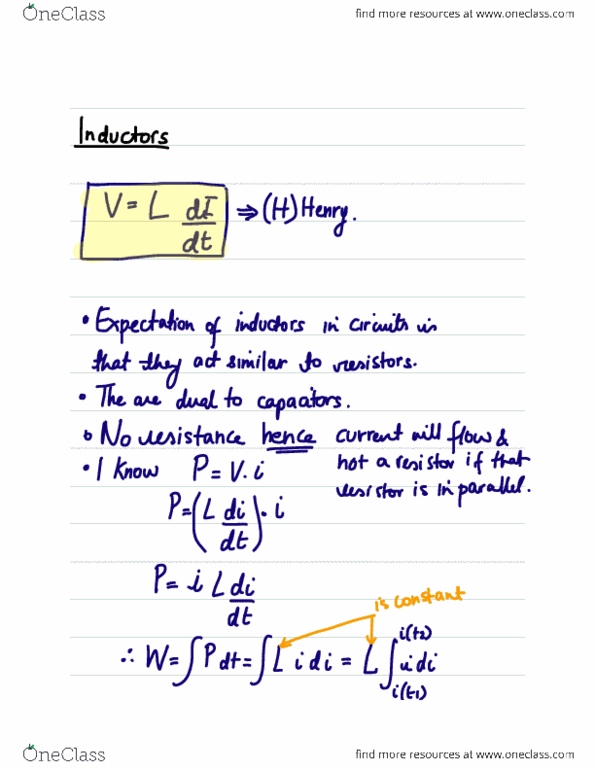 OneClass find more resources at www.oneclass.com
Inductors
V = L dI/dt ⇒ (H) Henry.
• Expectation of inductors in circuits is
that they act similar to resistors.
• The are dual to capacitors.
• No resistance hence current will flow &
not a resistor if that
resistor is in parallel.
• I know P = V. i
P = (L di/dt) · i
P = i L di/dt
is constant
∴ W = ∫ P dt = ∫ L i di = L ∫ i(t1) i(t2) i di
OneClass find more resources at www.oneclass.com